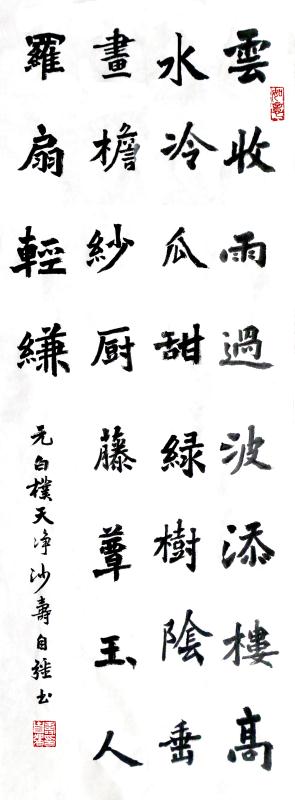 雲收雨過波添樓高
水冷瓜甜綠樹陰垂
畫檐紗厨藤蕈玉人
羅扇輕縑
元白樸天净沙壽自強书